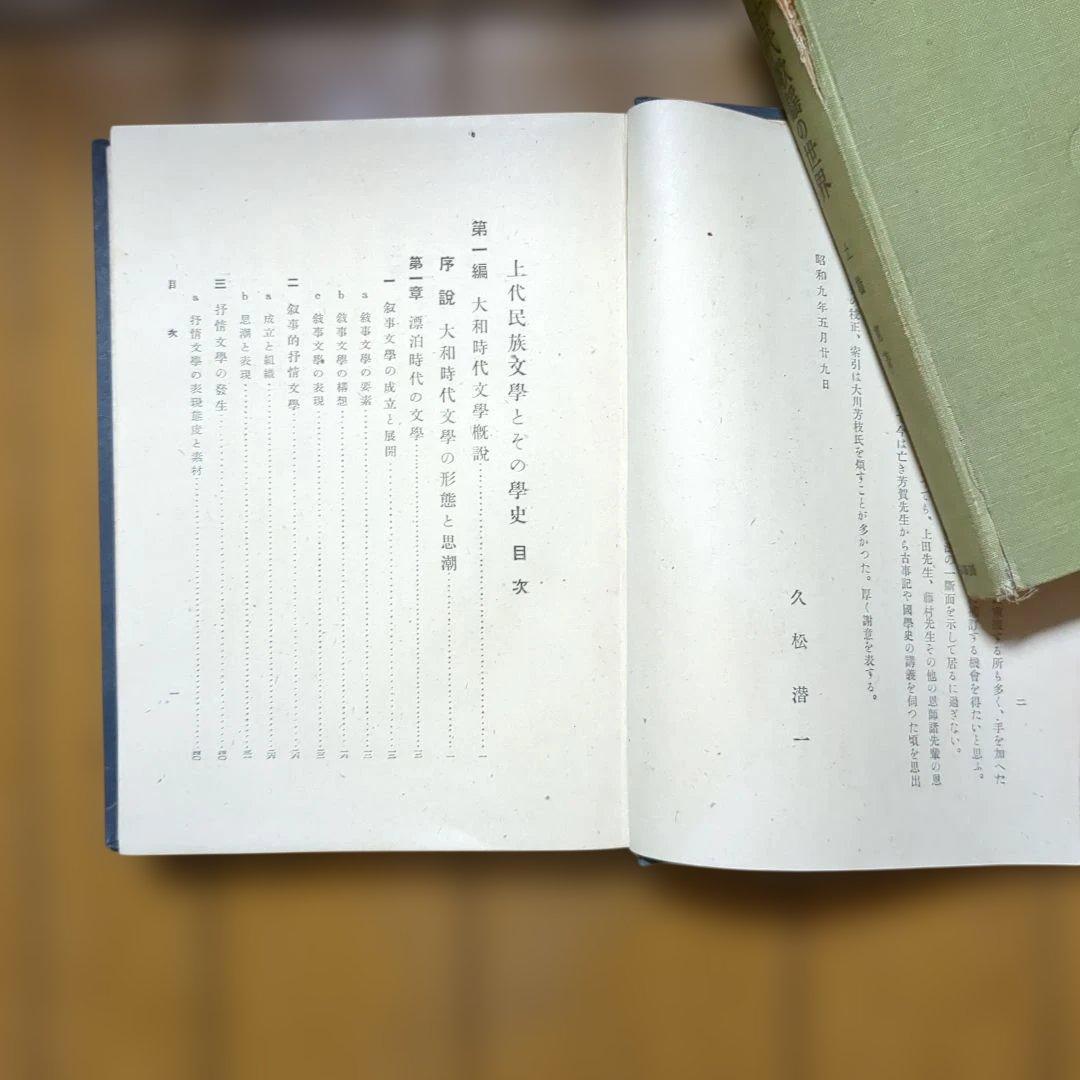 する所も多く、手を加へた
訂する機會を得たいと思ふ。
の一斷面を示して居るに過ぎない。
ても、上田先生、藤村先生その他の恩師諸先輩の恩
今は亡き芳賀先生から古事記や國學史の講義を伺つた頃を思出
校正、索引は大川芳枝氏を煩すことが多かつた。厚く謝意を表する。
昭和九年五月廿九日
久松潜一
二
上代民族文學とその學史 目次
第一編 大和時代文學槪說……一
序說 大和時代文學の形態と思潮……一
第一章 漂泊時代の文學……三
一 敍事文學の成立と展開……三
a 敍事文學の要素……三
b 敍事文學の構想……一六
c 敍事文學の表現……三
二 敍事的抒情文學……六
a 成立と組織……六
b 思潮と表現……三
三 抒情文學の發生……四〇
a 抒情文學の表現態度と素材……四〇
目次
一
代歌謠の世界